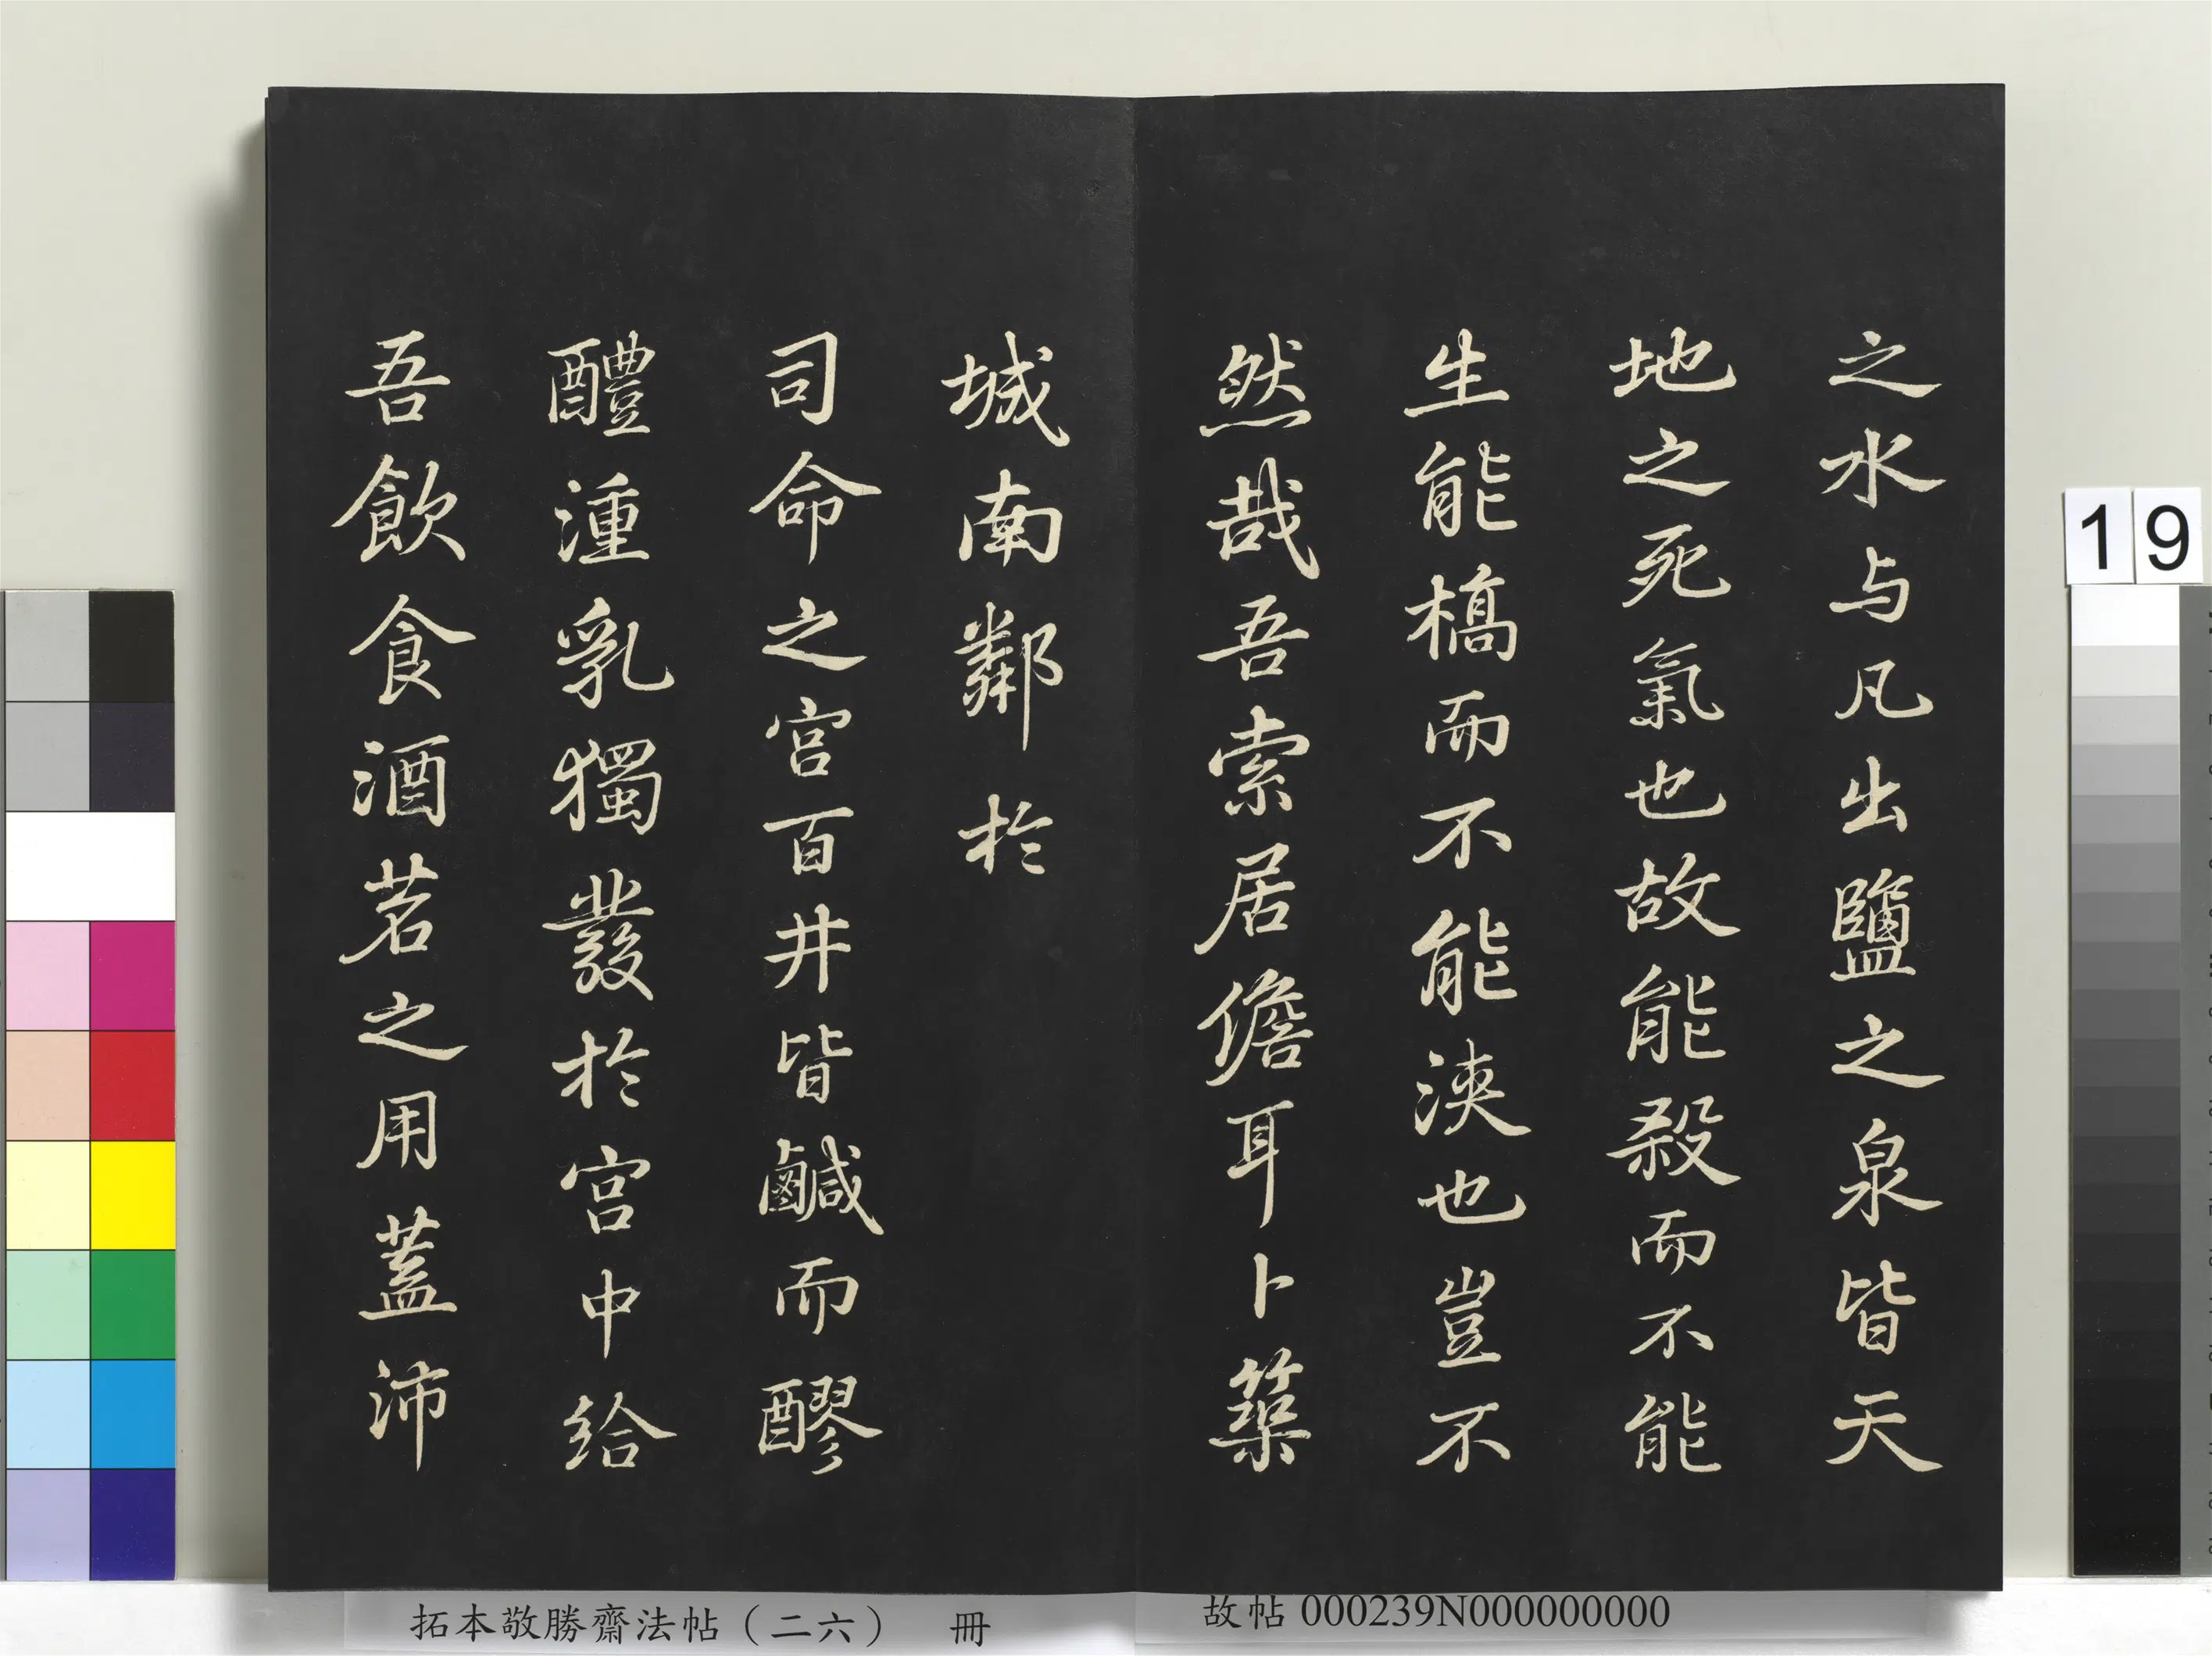 之水与凡出鹽之泉皆天
地之死氣也故能殺而不能
生能槁而不能浹也豈不
然哉吾索居儋耳卜築
城南鄰於
司命之宮百井皆鹹而醪
醴湩乳獨發於宮中給
吾飲食酒茗之用蓋沛
19
拓本敬勝齋法帖（二六） 冊
故帖 000239N000000000